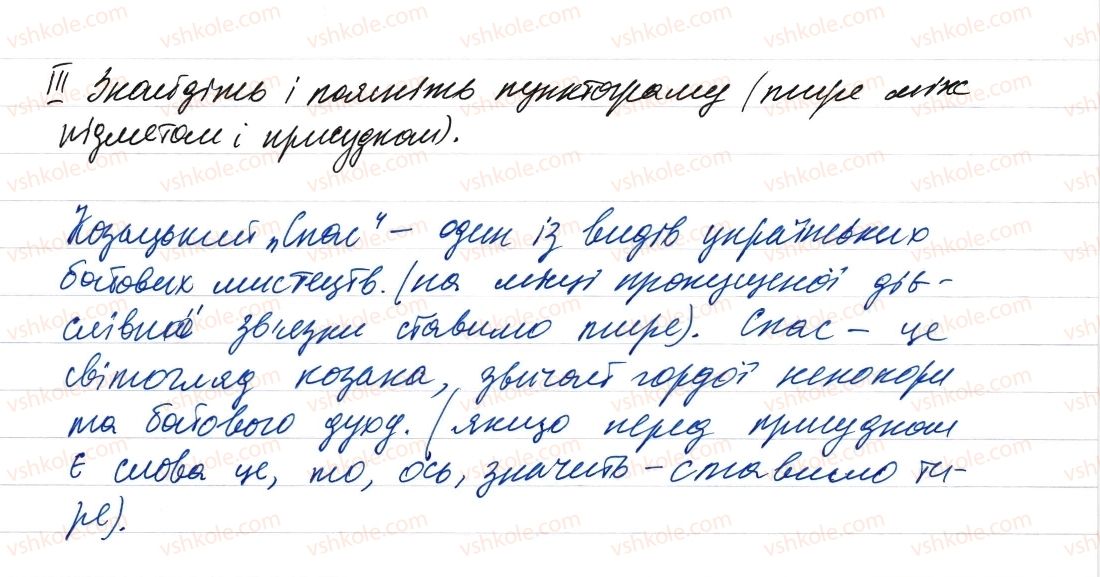 III Знайдіть і поясніть пунктограму (тире між
підметом і присудком).
Козацький „Спас" – один із видів українських
бойових мистецтв. (на місці пропущеної діє-
слівної зв'язки ставимо тире). Спас – це
світогляд козака, звичаї гордої непокори
та бойового духу. (якщо перед присудком
є слова це, то, ось, значить – ставимо ти-
ре).
vshkole.com